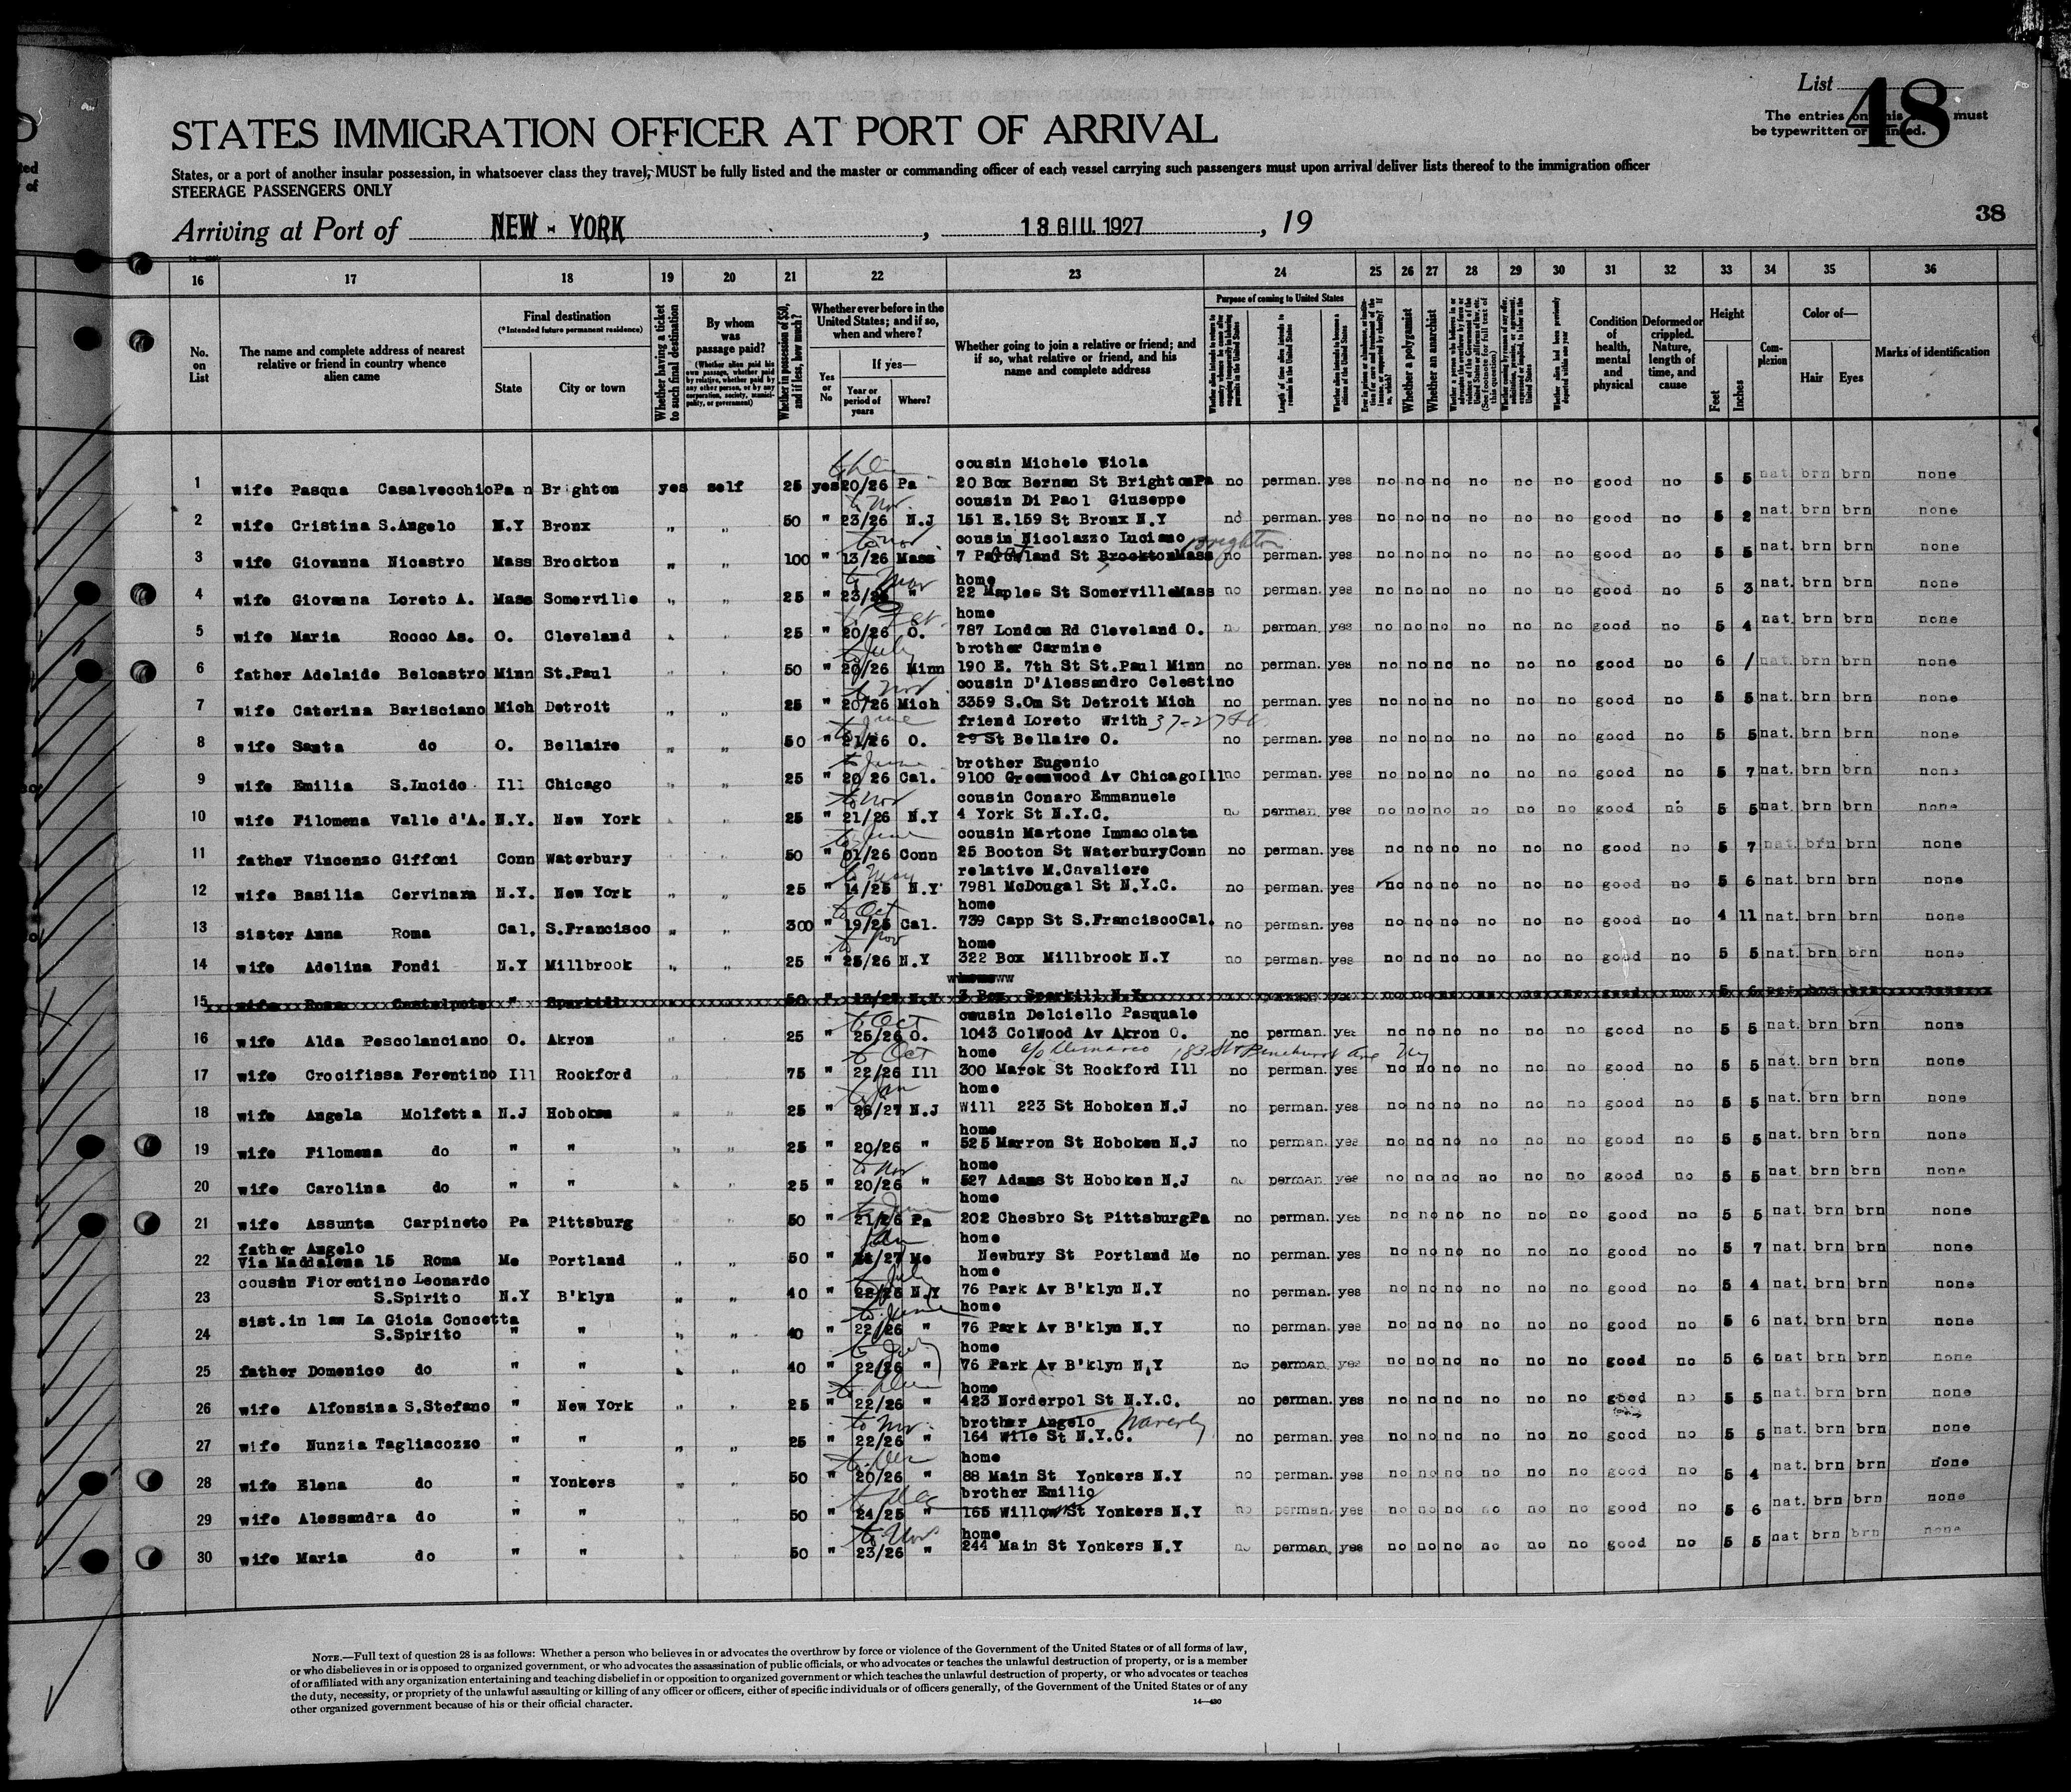 List 48
The entries on this must
be typewritten or printed.
STATES IMMIGRATION OFFICER AT PORT OF ARRIVAL
States, or a port of another insular possession, in whatsoever class they travel, MUST be fully listed and the master or commanding officer of each vessel carrying such passengers must upon arrival deliver lists thereof to the immigration officer
STEERAGE PASSENGERS ONLY
38
Arriving at Port of NEW - YORK, 13 GIU. 1927, 19
16 17 18 19 20 21 22 23 24 25 26 27 28 29 30 31 32 33 34 35 36
No. on List
The name and complete address of nearest relative or friend in country whence alien came
Final destination
(*Intended future permanent residence)
State
City or town
Whether having a ticket to such final destination
By whom was passage paid?
(Whether alien paid his own passage, whether paid by relative, whether paid by any other person, or by any corporation, society, municipality, or government)
Whether in possession of $50, and if less, how much?
Whether ever before in the United States; and if so, when and where?
Yes or No
If yes—
Year or period of years
Where?
Whether going to join a relative or friend; and if so, what relative or friend, and his name and complete address
Purpose of coming to United States
Length of time alien intends to remain in the United States
Whether a polygamist
Whether an anarchist
Condition of health, mental and physical
Deformed or crippled. Nature, length of time, and cause
Height
Feet
Inches
Complexion
Color of—
Hair
Eyes
Marks of identification
cousin Michele Viola
1 wife Pasqua Casalvecchio Pa n Brighton yes self 25 yes 20/26 Pa 20 Box Bernan St Brighton Pa no perman. yes no no no no no no good no 5 5 nat. brn brn none
to Nov cousin Di Paol Giuseppe
2 wife Cristina S.Angelo N.Y Bronx " " 50 " 23/26 N.J 151 E.159 St Bronx N.Y no perman. yes no no no no no no good no 5 2 nat. brn brn none
to Nov cousin Nicolazzo Luciano Brighton
3 wife Giovanna Nicastro Mass Brockton " " 100 " 13/26 Mass 7 land St Brockton Mass no perman. yes no no no no no no good no 5 5 nat. brn brn none
to home
4 wife Giovanna Loreto A. Mass Somerville " " 25 " 23/ " 22 Maples St Somerville Mass no perman. yes no no no no no no good no 5 3 nat. brn brn none
to Oct. home
5 wife Maria Rocco As. O. Cleveland " " 25 " 20/26 O. 787 London Rd Cleveland O. no perman. yes no no no no no no good no 5 4 nat. brn brn none
to July brother Carmine
6 father Adelaide Belcastro Minn St.Paul " " 50 " 20/26 Minn 190 E. 7th St St.Paul Minn no perman. yes no no no no no no good no 6 / nat. brn brn none
to Nov cousin D'Alessandro Celestino
7 wife Caterina Barisciano Mich Detroit " " 25 " 20/26 Mich 3359 S.Om St Detroit Mich no perman. yes no no no no no no good no 5 5 nat. brn brn none
to June friend Loreto Writh 37-27 St.
8 wife Santa do O. Bellaire " " 50 " 21/26 O. 29 St Bellaire O. no perman. yes no no no no no no good no 5 5 nat. brn brn none
to June brother Eugenio
9 wife Emilia S.Lucido Ill Chicago " " 25 " 20 26 Cal. 9100 Greenwood Av Chicago Ill no perman. yes no no no no no no good no 5 7 nat. brn brn none
to Nov cousin Conaro Emmanuele
10 wife Filomena Valle d'A. N.Y. New York " " 25 " 21/26 N.Y 4 York St N.Y.C. no perman. yes no no no no no no good no 5 5 nat. brn brn none
to June cousin Martone Immacolata
11 father Vincenzo Giffoni Conn Waterbury " " 50 " 01/26 Conn 25 Booton St Waterbury Conn no perman. yes no no no no no no good no 5 7 nat. brn brn none
to May relative M.Cavaliere
12 wife Basilia Cervinara N.Y. New York " " 25 " 14/25 N.Y 7981 McDougal St N.Y.C. no perman. yes no no no no no no good no 5 6 nat. brn brn none
to Oct home
13 sister Anna Roma Cal. S.Francisco " " 300 " 19/25 Cal. 739 Capp St S.Francisco Cal. no perman. yes no no no no no no good no 4 11 nat. brn brn none
to Nov home
14 wife Adelina Fondi N.Y Millbrook " " 25 " 25/26 N.Y 322 Box Millbrook N.Y no perman. yes no no no no no no good no 5 5 nat. brn brn none
15 wife Rosa Castelpoto " Sparkill 50 " N.Y Box Sparkill N.Y
to Oct cousin Delciello Pasquale
16 wife Alda Pescolanciano O. Akron " " 25 " 25/26 O. 1043 Colwood Av Akron O. no perman. yes no no no no no no good no 5 5 nat. brn brn none
to Oct home c/o Demarco 183 St Pinehurst Ave Ny
17 wife Crocifissa Ferentino Ill Rockford " " 75 " 22/26 Ill 300 Marok St Rockford Ill no perman. yes no no no no no no good no 5 5 nat. brn brn none
to Jan home
18 wife Angela Molfetta N.J Hoboken " " 25 " 26/27 N.J Will 223 St Hoboken N.J no perman. yes no no no no no no good no 5 5 nat. brn brn none
home
19 wife Filomena do " " " " 25 " 20/26 " 525 Marron St Hoboken N.J no perman. yes no no no no no no good no 5 5 nat. brn brn none
to Nov home
20 wife Carolina do " " " " 25 " 20/26 " 527 Adams St Hoboken N.J no perman. yes no no no no no no good no 5 5 nat. brn brn none
to home
21 wife Assunta Carpineto Pa Pittsburg " " 50 " 21/26 Pa 202 Chesbro St Pittsburg Pa no perman. yes no no no no no no good no 5 5 nat. brn brn none
father Angelo Jan home
22 Via Maddalena 15 Roma Me Portland " " 50 " /27 Me Newbury St Portland Me no perman. yes no no no no no no good no 5 7 nat. brn brn none
cousin Fiorentino Leonardo to July home
23 S.Spirito N.Y B'klyn " " 40 " 22/26 N.Y 76 Park Av B'klyn N.Y no perman. yes no no no no no no good no 5 4 nat. brn brn none
sist.in law La Gioia Concetta to June home
24 S.Spirito " " " " 40 " 22/26 " 76 Park Av B'klyn N.Y no perman. yes no no no no no no good no 5 6 nat. brn brn none
to July home
25 father Domenico do " " " " 40 " 22/26 " 76 Park Av B'klyn N.Y no perman. yes no no no no no no good no 5 6 nat brn brn none
to home
26 wife Alfonsina S.Stefano " New York " " 25 " 22/26 " 423 Norderpol St N.Y.C. no perman. yes no no no no no no good no 5 5 nat. brn brn none
to Nov brother Angelo Waverly
27 wife Nunzia Tagliacozzo " " " " 25 " 22/26 " 164 Wile St N.Y.C. no perman. yes no no no no no no good no 5 5 nat. brn brn none
to Dec home
28 wife Elena do " Yonkers " " 50 " 20/26 " 88 Main St Yonkers N.Y no perman. yes no no no no no no good no 5 4 nat. brn brn none
to Dec brother Emilio
29 wife Alessandra do " " " " 50 " 24/25 " 165 Willow St Yonkers N.Y no perman. yes no no no no no no good no 5 6 nat. brn brn none
to Nov home
30 wife Maria do " " " " 50 " 23/26 " 244 Main St Yonkers N.Y no perman. yes no no no no no no good no 5 5 nat brn brn none
NOTE.—Full text of question 28 is as follows: Whether a person who believes in or advocates the overthrow by force or violence of the Government of the United States or of all forms of law,
or who disbelieves in or is opposed to organized government, or who advocates the assassination of public officials, or who advocates or teaches the unlawful destruction of property, or is a member
of or affiliated with any organization entertaining and teaching disbelief in or opposition to organized government or which teaches the unlawful destruction of property, or who advocates or teaches
the duty, necessity, or propriety of the unlawful assaulting or killing of any officer or officers, either of specific individuals or of officers generally, of the Government of the United States or of any
other organized government because of his or their official character.
14—430